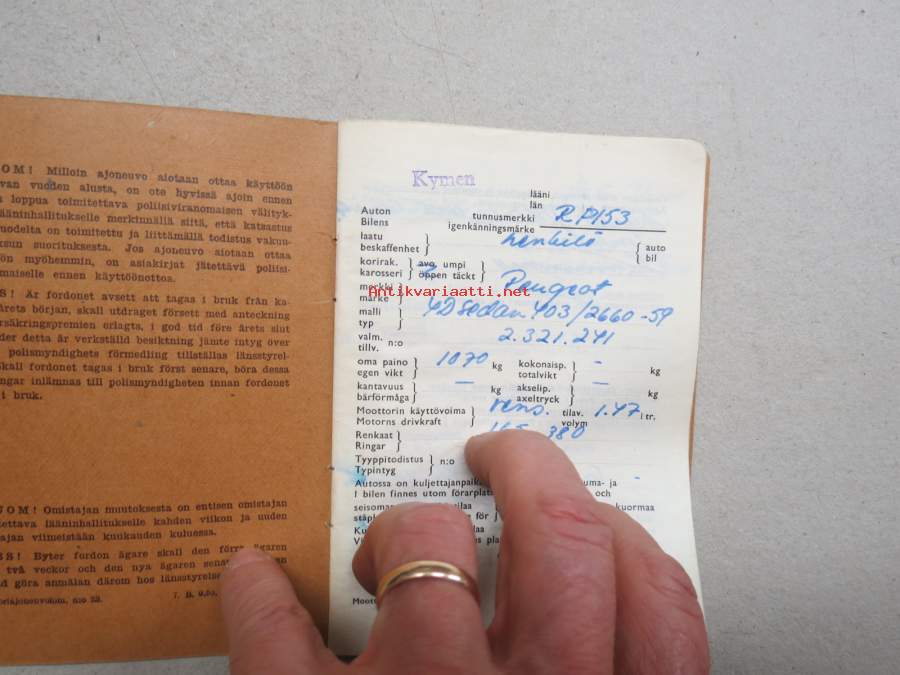 OM! Milloin ajoneuvo aiotaan ottaa käyttöön
van vuoden alusta, on ote hyvissä ajoin ennen
loppua toimitettava poliisiviranomaisen välityk-
ääninhallitukselle merkinnällä siitä, että katsastus
uodelta on toimitettu ja liittämällä todistus vakuu-
ksun suorituksesta. Jos ajoneuvo aiotaan ottaa
ön myöhemmin, on asiakirjat jätettävä poliisi-
maiselle ennen käyttöönottoa.
S! Är fordonet avsett att tagas i bruk från ka-
årets början, skall utdraget försett med anteckning
rsäkringspremien erlagts, i god tid före årets slut
der detta är verkställd besiktning jämte intyg över
polismyndighets förmedling tillställas länsstyrel-
Skall fordonet tagas i bruk först senare, böra dessa
ngar inlämnas till polismyndigheten innan fordonet
i bruk.
UOM! Omistajan muutoksesta on entisen omistajan
tettava lääninhallitukselle kahden viikon ja uuden
ajan viimeistään kuukauden kuluessa.
BS! Byter fordon ägare skall den förre ägaren
två veckor och den nya ägaren senast
d göra anmälan därom hos länsstyrelse
7. B. 9.50.
Kymen
lääni
län
Auton tunnusmerkki RP153
Bilens igenkänningsmärke
laatu henkilö auto
beskaffenhet bil
korirak. avo umpi
karosseri öppen täckt
merkki Peugeot
märke
Antikvariaatti.net
malli 4D sedan 403/2660-59
typ
valm. n:o 2.321.241
tillv.
oma paino 1070 kg kokonaisp. - kg
egen vikt totalvikt
kantavuus — kg akselip. — kg
bärförmåga axeltryck
Moottorin käyttövoima bens. tilav. 1.47 itr.
Motorns drivkraft volym
Renkaat 165 380
Ringar
Tyyppitodistus n:o
Typintyg
Autossa on kuljettajanpaik uma- ja -
I bilen finnes utom förarplats och
seisoma ilaa kuormaa
ståpl s för